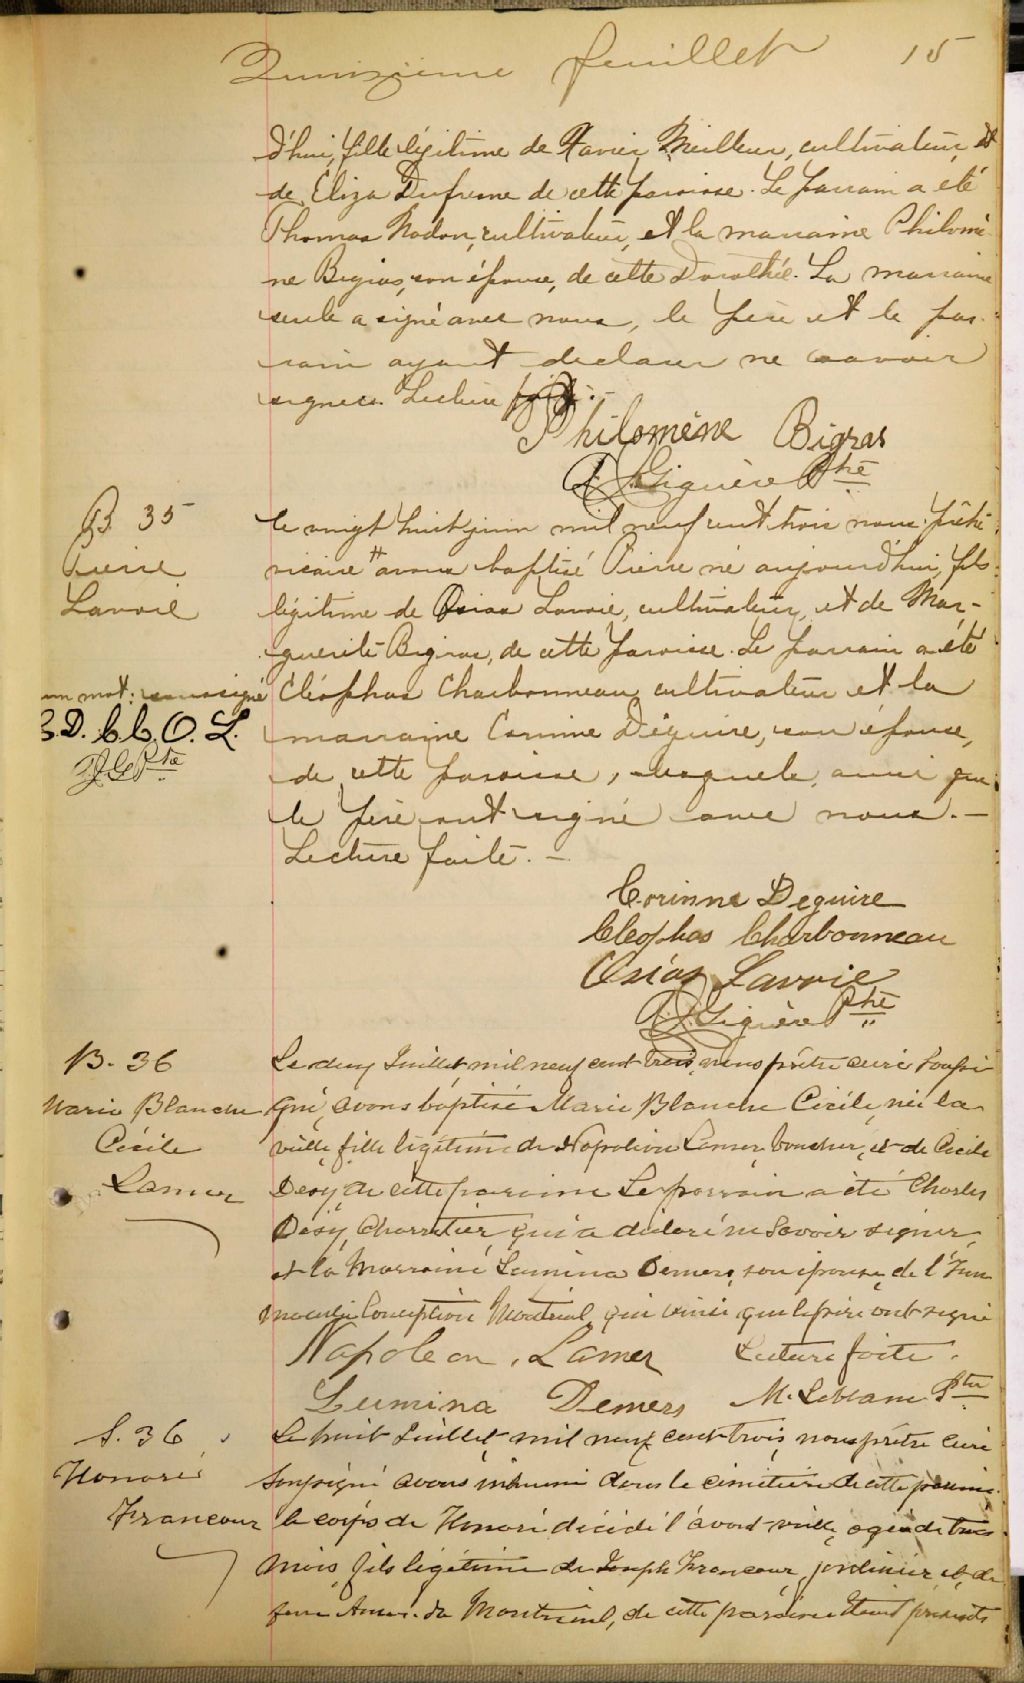 Quinzième feuillet 15
d'hui, fille légitime de Xavier Meilleur, cultivateur, et
de Eliza Dufresne de cette paroisse. Le parrain a été
Thomas Nadon, cultivateur, et la marraine Philomè-
ne Bigras, son épouse, de cette Dorothée. La marraine
seule a signé avec nous, le père et le par-
rain ayant declarer ne savoir
signer. Lecture faite.-
Philomène Bigras
Giguère Ptre
B 35
Pierre
Lavoie
le vingt huit juin mil neuf cent trois nous prêtre
vicaire avons baptisé Pierre né aujourd'hui, fils
légitime de Osias Lavoie, cultivateur, et de Mar-
guerite Bigras, de cette paroisse. Le parrain a été
Cléophas Charbonneau cultivateur et la
marraine Corinne Déguire, son épouse,
de cette paroisse, lesquels, ainsi que
le père ont signé avec nous.-
Lecture faite.-
un mot: soussigné
C.D. C.C. O.L.
J G Ptre
Corinne Deguire
Cleophas Charbonneau
Osias Lavoie
Giguère Ptre
B. 36
Marie Blanche
Cécile
Lamer
Le deux Juillet mil neuf cent trois, nous prêtre curé soussi-
gné, avons baptisé Marie Blanche Cécile, née la
veille, fille légitime de Napoléon Lamer boucher, et de Cécile
Désy, de cette paroisse. Le parrain a été Charles
Désy, Charretier, qui a déclaré ne savoir signer,
et la Marraine Lumina Demers, son épouse, de l'Im-
maculée Conception Montréal, qui ainsi que le père ont signé
Napoleon. Lamer Lecture faite.
Lumina Demers M. Leblanc Ptre
S. 36
Honoré
Francoeur
Le huit Juillet, mil neuf cent trois, nous prêtre curé
soussigné avons inhumé dans le cimetière de cette paroisse
le corps de Honoré décédé l'avant veille, agé de trois
mois, fils légitime de Joseph Francoeur, jardinier, et de
de Montreuil, de cette paroisse Etaient présents